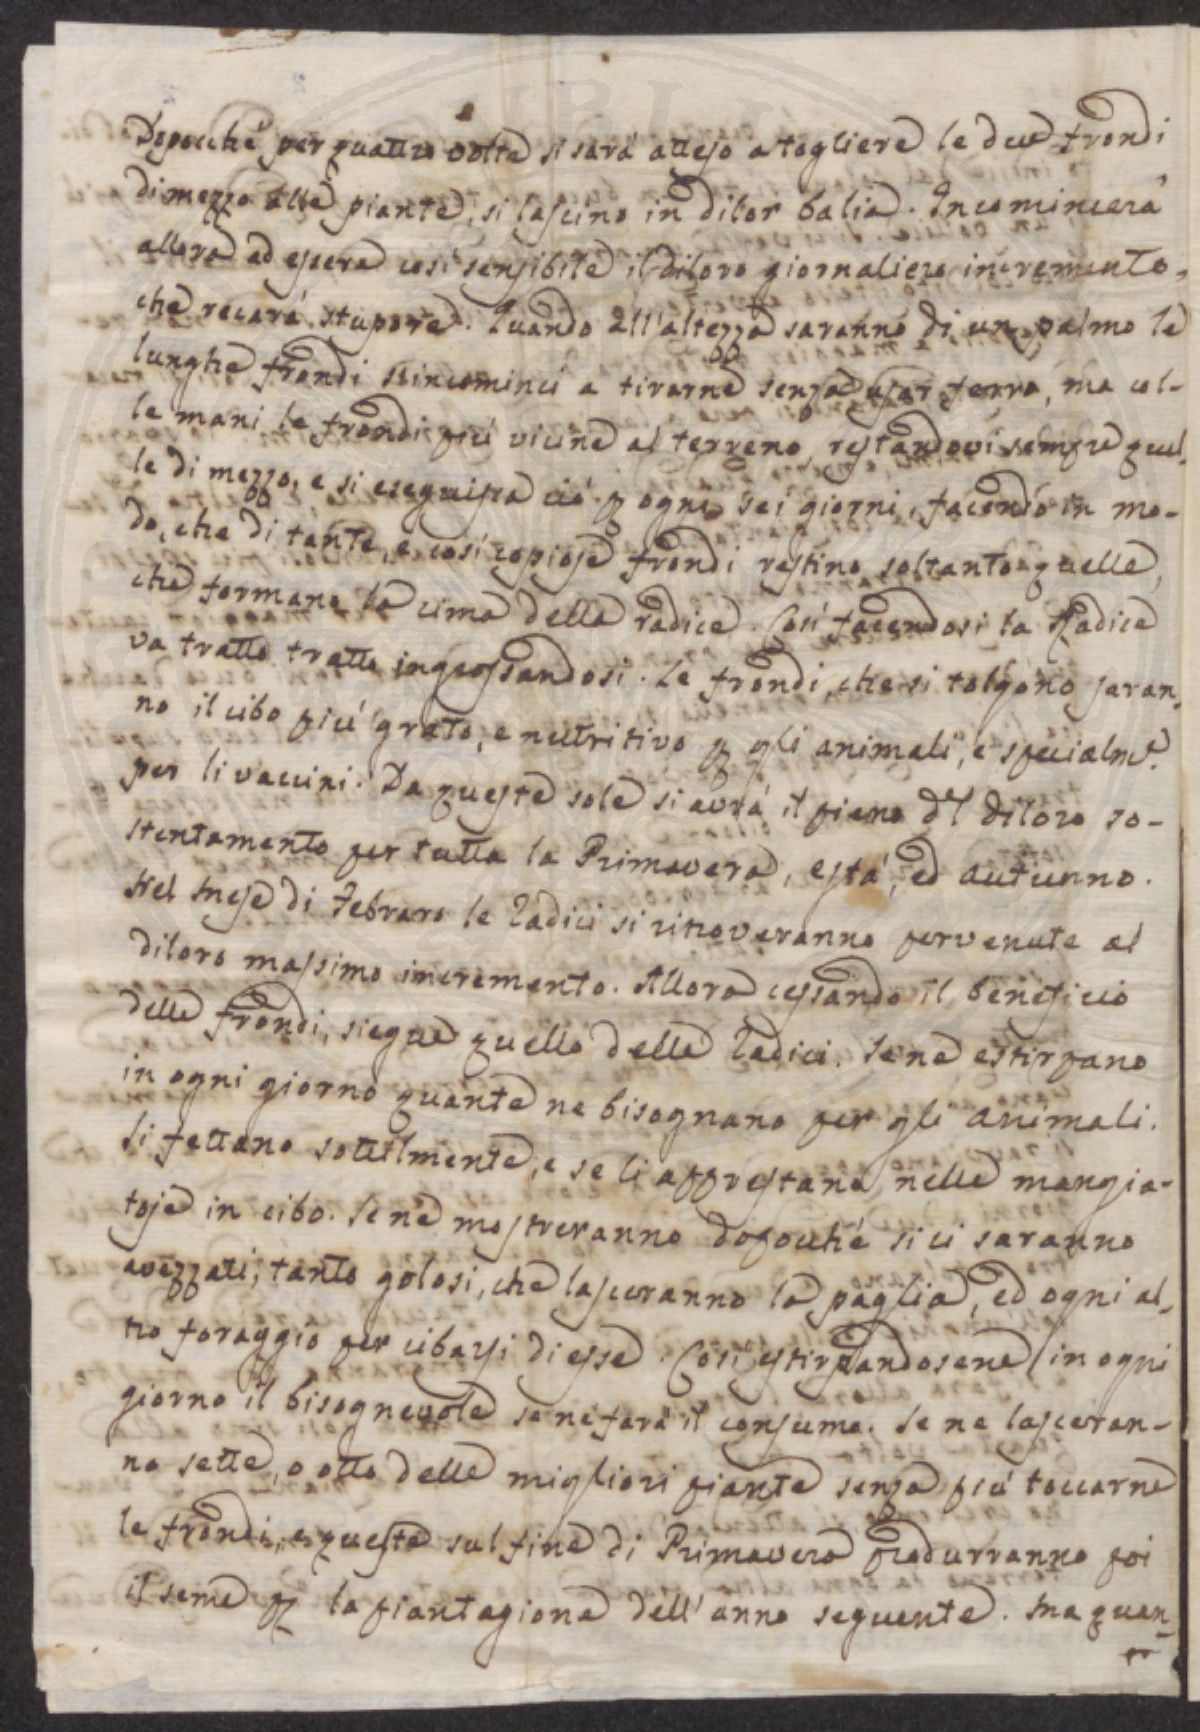 Dopocché per quattro volte si sará atteso a togliere le due frondi
di mezzo alle piante, si lascino in dilor balia. Incomincerá
allora ad essere cosí sensibile il diloro giornaliero incremento,
che recará stupore. Quando all'altezza saranno di un palmo le
lunghe frondi s'incominci a tirarne senza usar ferro, ma col-
le mani le frondi piú vicine al terreno, restandovi sempre quel-
le di mezzo, e si eseguisca ció p ogni sei giorni, facendo in mo-
do, che di tante, e cosí copiose frondi restino soltanto quelle,
che formano la cima della radice. Cosí facendosi la Radice
va tratto tratto ingrossandosi. Le frondi, che si tolgono saran-
no il cibo piú grato, e nutritivo p gli animali, e specialme.
per li vaccini. Da queste sole si avrá il pieno dl diloro so-
stentamento per tutta la Primavera, està, ed autunno.
Nel mese di Febraro le Radici si ritroveranno pervenute al
diloro massimo incremento. Allora cessando il beneficio
delle frondi, siegue quello delle Radici. Se ne estirpano
in ogni giorno quante ne bisognano per gli animali.
Si fettano sottilmente, e se li apprestano nelle mangia-
toje in cibo. Se ne mostreranno dopocché si ci saranno
avezzati, tanto golosi, che lasceranno la paglia, ed ogni al-
tro foraggio per cibarsi di esse. Cosí estirpandosene in ogni
giorno il bisognevole se ne fará il consumo. Se ne lasceran-
no sette, o otto delle migliori piante senza piú toccarne
le frondi, e queste sul fine di Primavera produrranno poi
il seme p la piantagione dell'anno seguente. Ma quan-